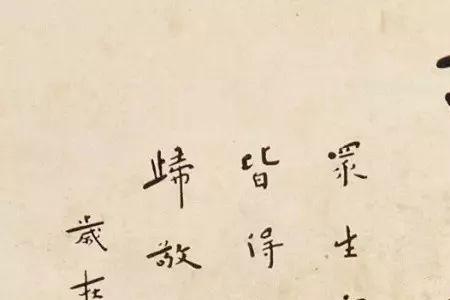 眾生
皆得
歸敬
歲在